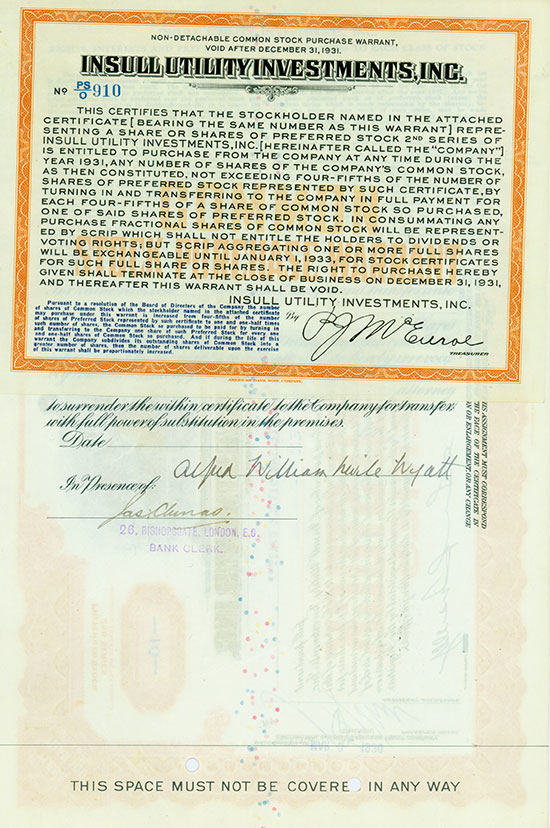 NON-DETACHABLE COMMON STOCK PURCHASE WARRANT,
VOID AFTER DECEMBER 31, 1931.
INSULL UTILITY INVESTMENTS, INC.
No PS/O 910
THIS CERTIFIES THAT THE STOCKHOLDER NAMED IN THE ATTACHED
CERTIFICATE [BEARING THE SAME NUMBER AS THIS WARRANT] REPRE-
SENTING A SHARE OR SHARES OF PREFERRED STOCK 2ND SERIES OF
INSULL UTILITY INVESTMENTS, INC. [HEREINAFTER CALLED THE "COMPANY"]
IS ENTITLED TO PURCHASE FROM THE COMPANY AT ANY TIME DURING THE
YEAR 1931, ANY NUMBER OF SHARES OF THE COMPANY'S COMMON STOCK,
AS THEN CONSTITUTED, NOT EXCEEDING FOUR-FIFTHS OF THE NUMBER OF
SHARES OF PREFERRED STOCK REPRESENTED BY SUCH CERTIFICATE, BY
TURNING IN AND TRANSFERRING TO THE COMPANY IN FULL PAYMENT FOR
EACH FOUR-FIFTHS OF A SHARE OF COMMON STOCK SO PURCHASED,
ONE OF SAID SHARES OF PREFERRED STOCK. IN CONSUMMATING ANY
PURCHASE FRACTIONAL SHARES OF COMMON STOCK WILL BE REPRESENT-
ED BY SCRIP WHICH SHALL NOT ENTITLE THE HOLDERS TO DIVIDENDS OR
VOTING RIGHTS; BUT SCRIP AGGREGATING ONE OR MORE FULL SHARES
WILL BE EXCHANGEABLE UNTIL JANUARY 1, 1933, FOR STOCK CERTIFICATES
FOR SUCH FULL SHARE OR SHARES. THE RIGHT TO PURCHASE HEREBY
GIVEN SHALL TERMINATE AT THE CLOSE OF BUSINESS ON DECEMBER 31, 1931,
AND THEREAFTER THIS WARRANT SHALL BE VOID.
INSULL UTILITY INVESTMENTS, INC.
By P J McEnroe
TREASURER
Pursuant to a resolution of the Board of Directors of the Company the number
of shares of Common Stock which the stockholder named in the attached certificate
may purchase under this warrant is increased from four-fifths of the number
of shares of Preferred Stock represented by such certificate to one and one-half times
such number of shares, the Common Stock so purchased to be paid for by turning in
and transferring to the Company one share of such Preferred Stock for every one
and one-half shares of Common Stock so purchased. And if during the life of this
warrant the Company subdivides its outstanding shares of Common Stock into a
greater number of shares, then the number of shares deliverable upon the exercise
of this warrant shall be proportionately increased.
to surrender the within certificate to the Company for transfer
with full power of substitution in the premises.
Date
Alfred William Nevile Wyatt
In Presence of:
26, BISHOPSGATE, LONDON, E.C.
BANK CLERK.
HIS ASSIGNMENT MUST CORRESPOND
THE FACE OF THE CERTIFICATE IN
N OR ENLARGEMENT OR ANY CHANGE
THIS SPACE MUST NOT BE COVERED IN ANY WAY